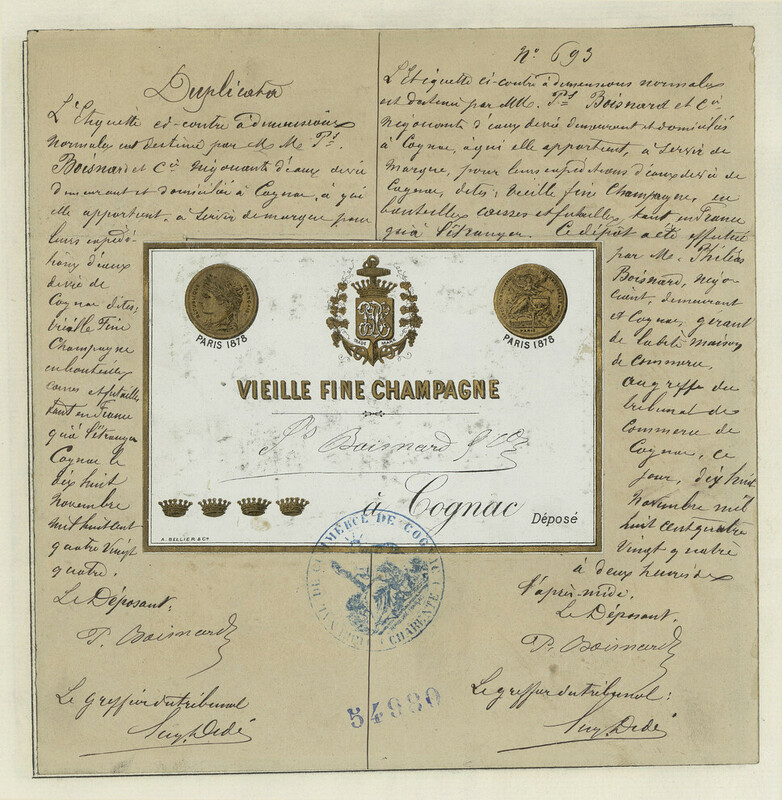 Duplicata
L'Etiquette ci-contre à dimensions
normales est destiné par M M. Ps.
Boisnard et Cie négociants d'eaux de vie
demeurant et domiciliés à Cognac, à qui
elle appartient, à servir de marque pour
leurs expédi-
tions d'eaux
de vie de
Cognac dites:
vieille Fine
Champagne
en bouteilles
caisses et futailles
tant en France
qu'à l'étranger
Cognac le
dix huit
novembre
mil huit cent
quatre vingt
quatre.
Le Déposant:
P. Boisnard
Le greffier du tribunal
No. 693
L'Etiquette ci-contre à dimensions normales
est destiné par MM. Ps Boisnard et Cie
négociants d'eaux de vie demeurant et domiciliés
à Cognac, à qui elle appartient, à servir de
marque, pour leurs expéditions d'eaux de vie de
Cognac, dites: vieille fine Champagne, en
bouteilles caisses et futailles, tant en France
qu'à l'étranger. Ce dépôt a été effectué
par M. Philéas
Boisnard, négo-
ciant, demeurant
à Cognac, gérant
de la dite maison
de commerce,
au greffe du
tribunal de
Commerce de
Cognac, ce
jour, dix huit
novembre mil
huit cent quatre
vingt quatre
à deux heures de
l'après-midi.
Le Déposant,
P. Boisnard
Le greffier du tribunal:
PARIS 1878
TRADE MARK
PARIS 1878
VIEILLE FINE CHAMPAGNE
Ps Boisnard & Cie
à Cognac
Déposé
A. BELLIER & Cie
DE COMMERCE DE COGNAC
CHARENTE
54980